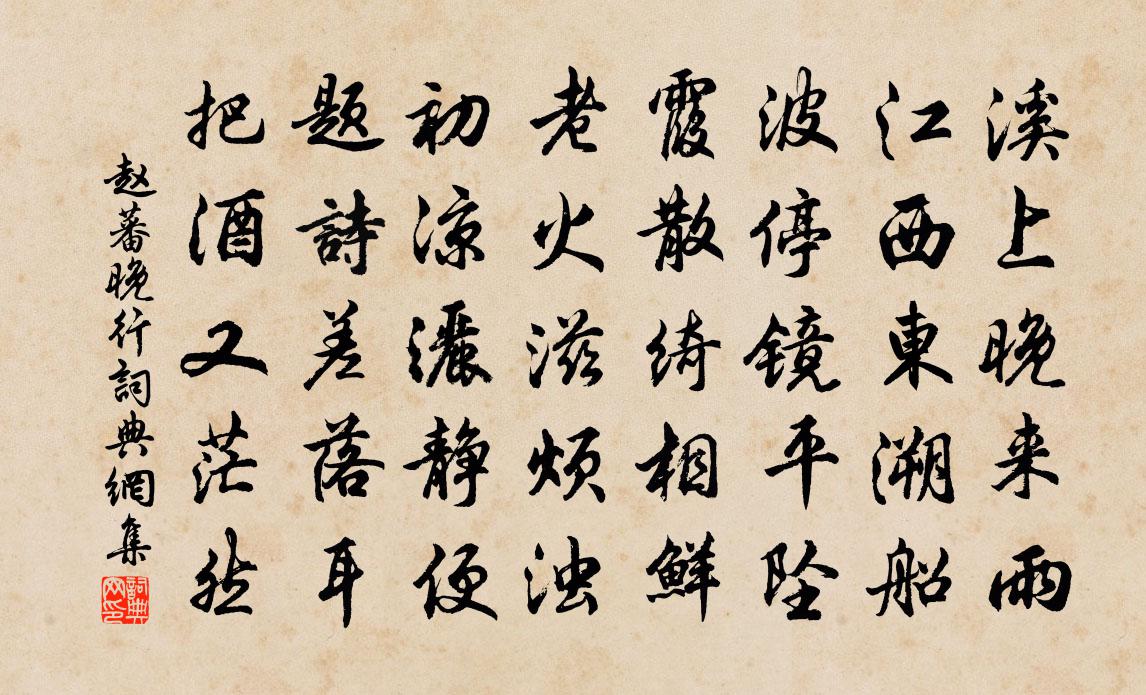 溪上晚来雨
江西東溯船
波停镜平坠
霞散绮相鮮
老火滋烦浊
初凉灑静便
题詩差落耳
把酒又茫然
赵蕃晚行詞典網集
詞典网印